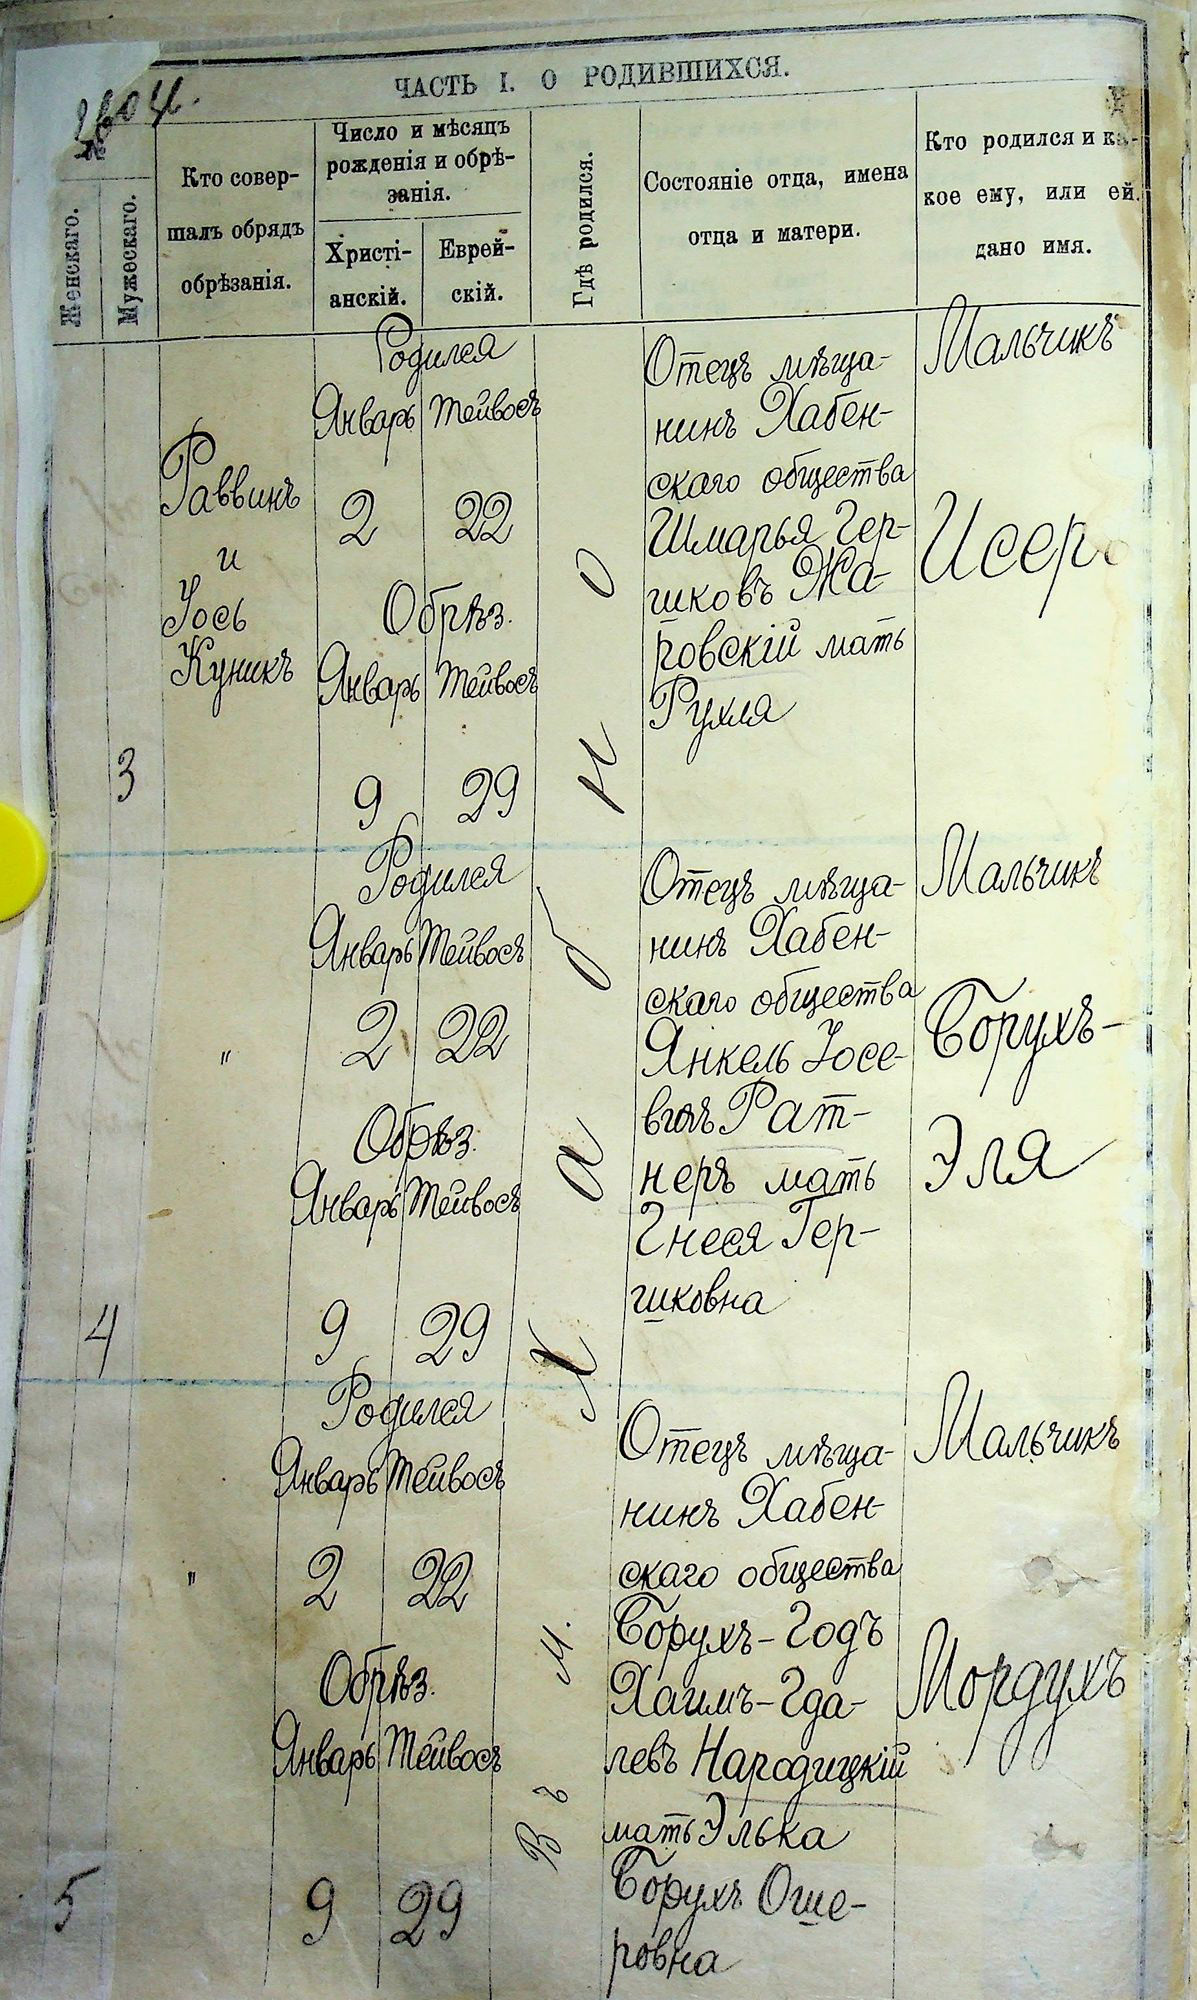 ЧАСТЬ I. О РОДИВШИХСЯ.
Женскаго.
Мужескаго.
Кто совер-
шалъ обрядъ
обрѣзанія.
Число и мѣсяцъ
рожденія и обрѣ-
занія.
Христі-
анскій.
Еврей-
скій.
Гдѣ родился.
Состояніе отца, имена
отца и матери.
Кто родился и ка-
кое ему, или ей.
дано имя.
3
Раввинъ
и
Іось
Куникъ
Родился
Январь Тейвосъ
2 22
Обрѣз.
Январь Тейвосъ
9 29
Въ м. Хабно
Отецъ мѣща-
нинъ Хабен-
скаго общества
Шмарья Гер-
шковъ Жа-
ровскій мать
Рухля
Мальчикъ
Исеръ
4
"
Родился
Январь Тейвосъ
2 22
Обрѣз.
Январь Тейвосъ
9 29
Отецъ мѣща-
нинъ Хабен-
скаго общества
Янкель Іосе-
вичъ Рат-
неръ мать
Гнеся Гер-
шковна
Мальчикъ
Борухъ-
Эля
5
"
Родился
Январь Тейвосъ
2 22
Обрѣз.
Январь Тейвосъ
9 29
Отецъ мѣща-
нинъ Хабен-
скаго общества
Борухъ-Годъ
Хаимъ-Гда-
левъ Народицкій
мать Элька
Борухъ Оше-
ровна
Мальчикъ
Мордухъ